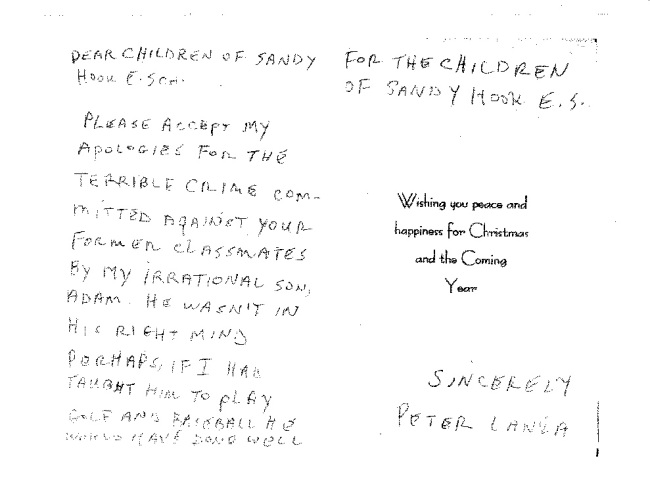 DEAR CHILDREN OF SANDY
HOOK E. SCH.
PLEASE ACCEPT MY
APOLOGIES FOR THE
TERRIBLE CRIME COM-
MITTED AGAINST YOUR
FORMER CLASSMATES
BY MY IRRATIONAL SON,
ADAM. HE WASN'T IN
HIS RIGHT MIND
PERHAPS, IF I HAD
TAUGHT HIM TO PLAY
GOLF AND BASEBALL HE
WOULD HAVE DONE WELL
FOR THE CHILDREN
OF SANDY HOOK E. S.
Wishing you peace and
happiness for Christmas
and the Coming
Year
SINCERELY
PETER LANZA